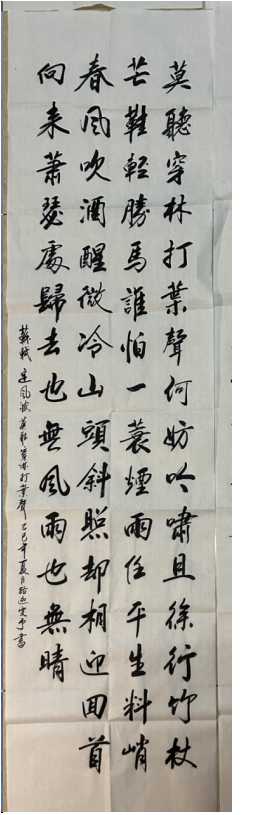 莫聽穿林打葉聲何妨吟嘯且徐行竹杖
芒鞋輕勝馬誰怕一蓑煙雨任平生料峭
春风吹酒醒微冷山頭斜照却相迎回首
向來蕭瑟處歸去也無风雨也無晴
蘇軾 定风波 莫聽穿林打葉聲 乙巳年夏月 書